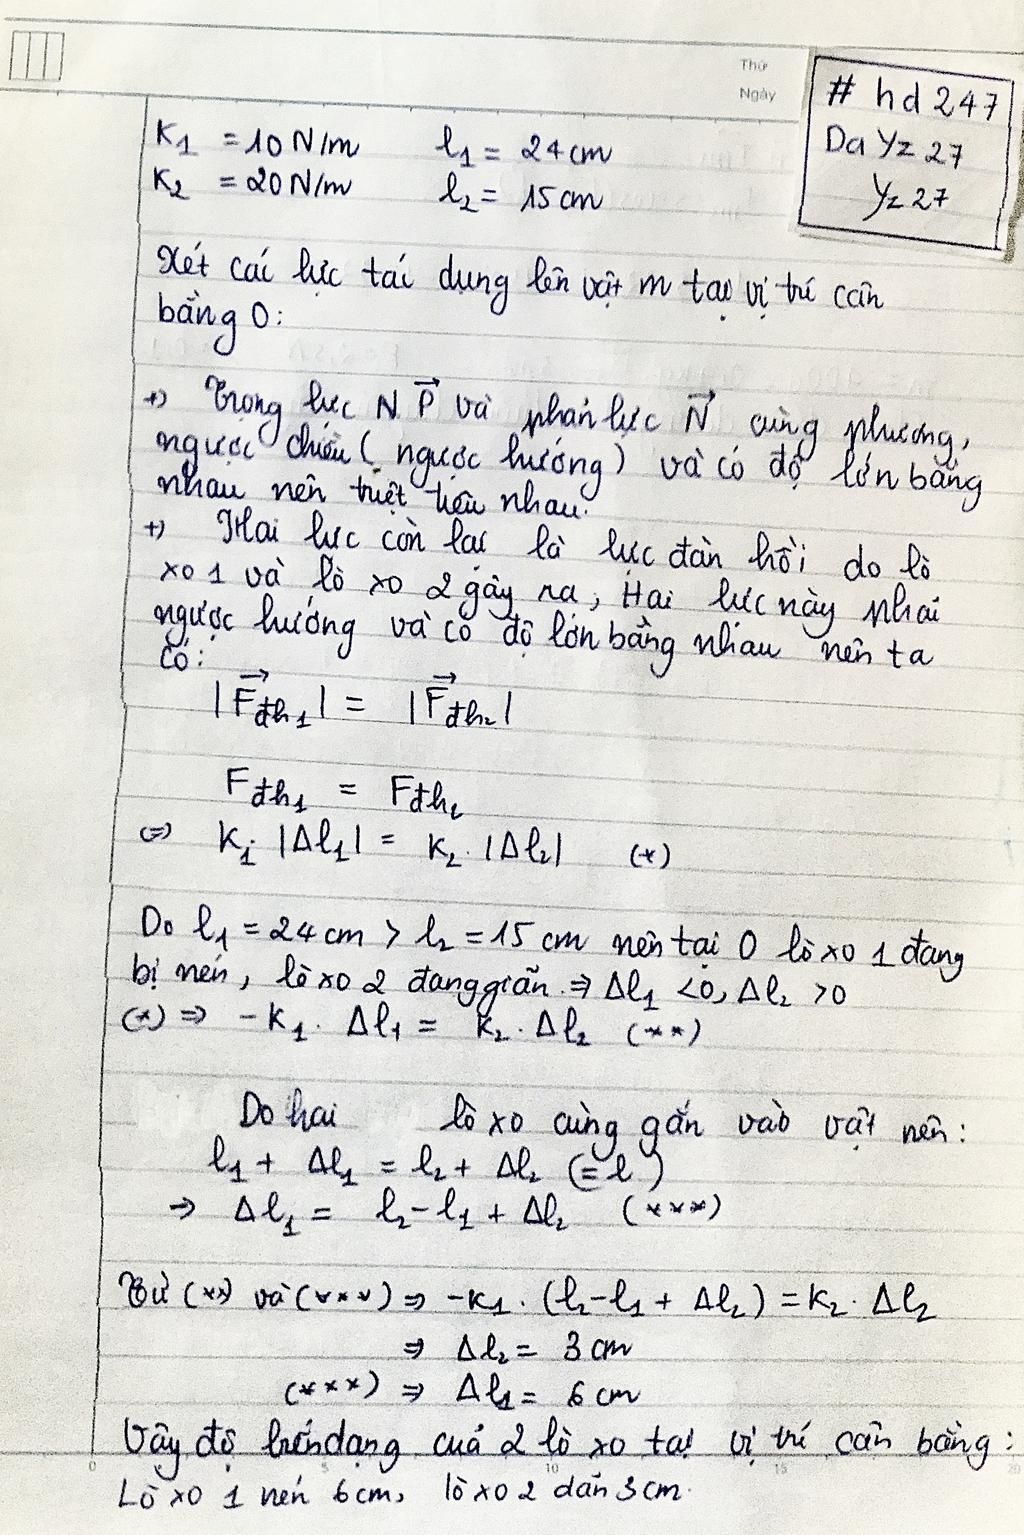 Thứ
Ngày
# hd 247
Da Yz 27
Yz 27
K₁ = 10 N/m l₁ = 24 cm
K₂ = 20 N/m l₂ = 15 cm
Xét cái lực tái dụng lên vật m tại vị trí cân
bằng O:
+) Trọng lực N P⃗ và phản lực N⃗ cùng phương,
ngược chiều ( ngược hướng ) và có độ lớn bằng
nhau nên triệt tiêu nhau.
+) Hai lực còn lại là lực đàn hồi do lò
xo 1 và lò xo 2 gây ra, Hai lực này phải
ngược hướng và có độ lớn bằng nhau nên ta
có:
|F⃗đh₁| = |F⃗đh₂|
Fđh₁ = Fđh₂
⇔ K₁. |Δl₁| = K₂. |Δl₂| (*)
Do l₁ = 24 cm > l₂ = 15 cm nên tại O lò xo 1 đang
bị nén, lò xo 2 đang giãn ⇒ Δl₁ < 0, Δl₂ > 0
(*) ⇒ -K₁. Δl₁ = K₂. Δl₂ (**)
Do hai lò xo cùng gắn vào vật nên:
l₁ + Δl₁ = l₂ + Δl₂ (= l)
⇒ Δl₁ = l₂ - l₁ + Δl₂ (***)
Từ (**) và (***) ⇒ -K₁. (l₂ - l₁ + Δl₂) = K₂. Δl₂
⇒ Δl₂ = 3 cm
(***) ⇒ Δl₁ = 6 cm
Vậy độ biến dạng của 2 lò xo tại vị trí cân bằng:
0 5 10 15 20
Lò xo 1 nén 6 cm, lò xo 2 dãn 3 cm.